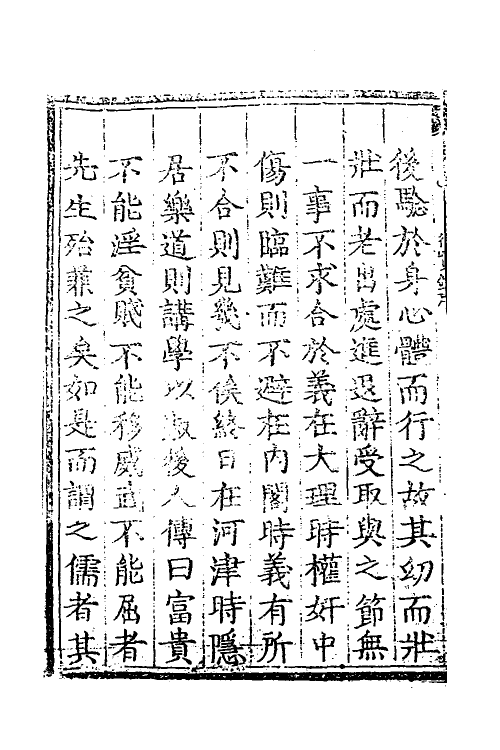 後驗於身心體而行之故其幼而壯
壯而老出處進退辭受取與之節無
一事不求合於義在大理時權奸中
傷則臨難而不避在内閣時義有所
不合則見幾不俟終日在河津時隱
居樂道則講學以淑後人傳曰富貴
不能淫貧賤不能移威武不能屈者
先生殆兼之矣如是而謂之儒者其